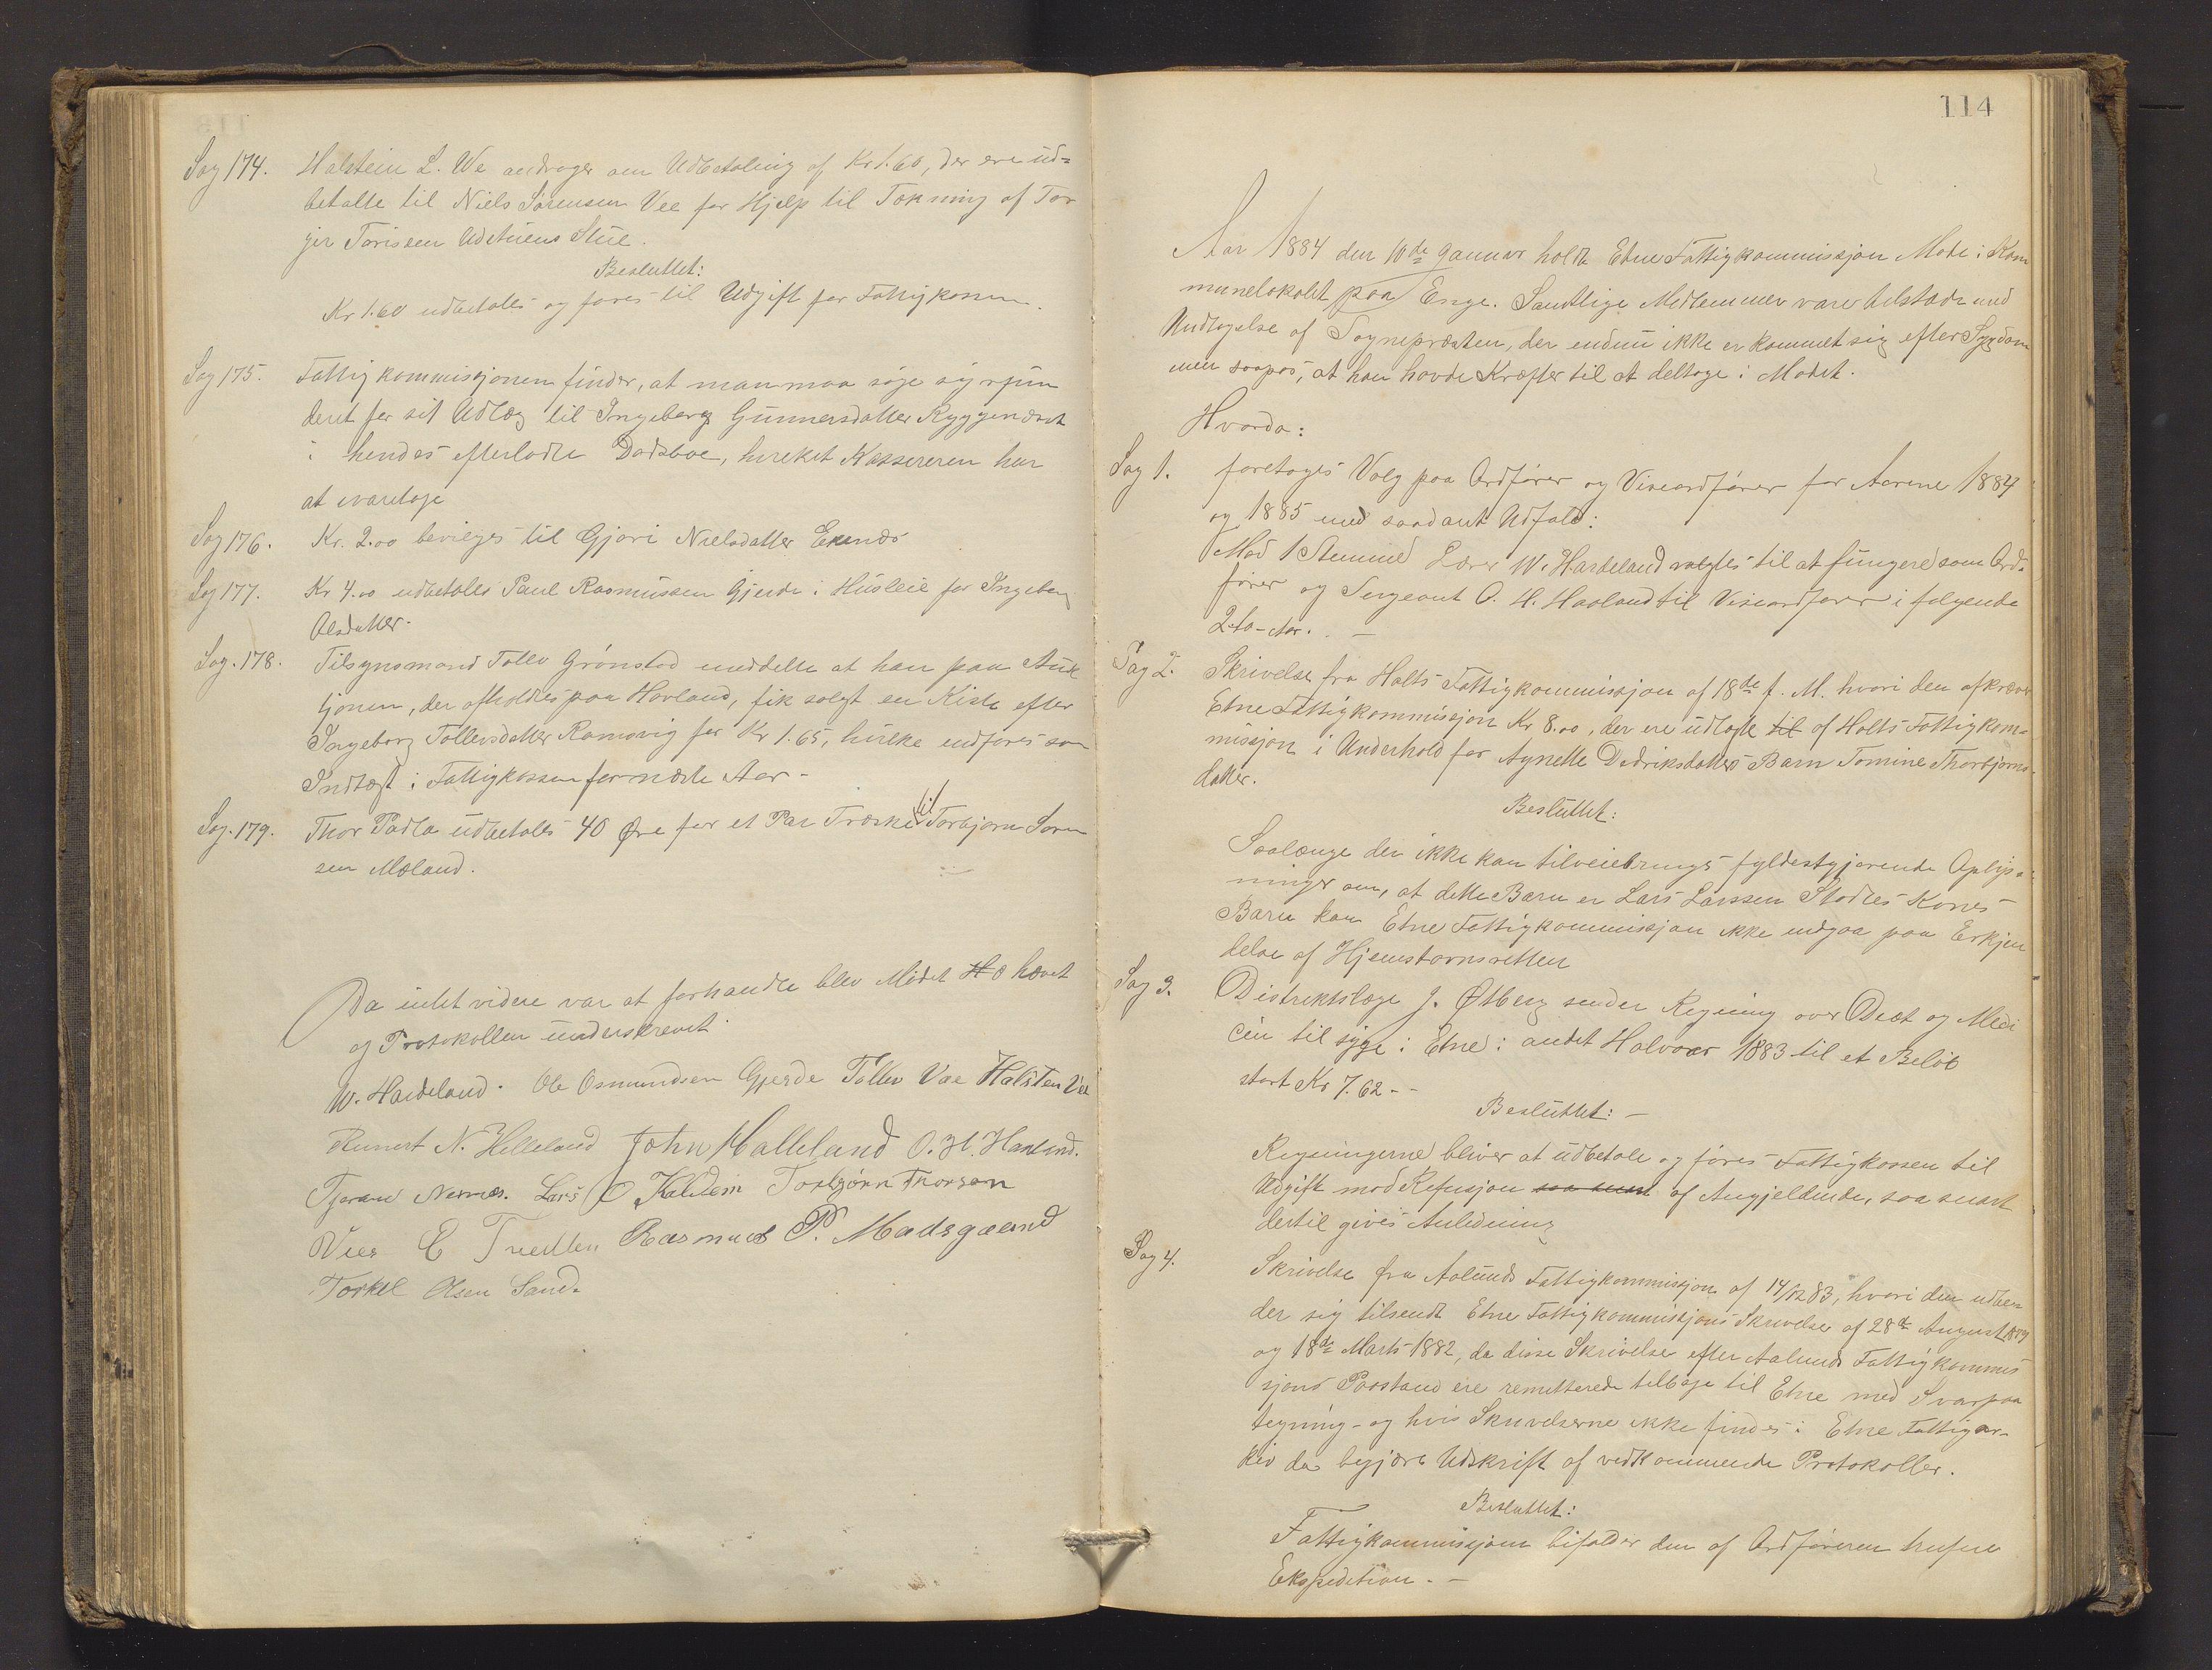 Sag 174. Halstein L. We andrager om Udbetaling af Kr 1.60, der ere ud=
betalte til Niels Sørensen Vee for Hjælp til Tækning af Tor
ger Torissen Udetuens Stue.
Besluttet:
Kr 1.60 udbetales og føres til Udgift for Fattigkassen.
Sag 175. Fattigkommissjonen finder, at man maa søge sig refun
deret for sit Udlæg til Ingeborg Gunnersdatter Ryggenæset
i hendes efterladte Dødsboe, hvilket Kassereren har
at ivaretage
Sag 176. Kr. 2.00 bevilges til Gjøri Nielsdatter Ekenæs
Sag 177. Kr 4.00 udbetales Paul Rasmussen Gjerde i Husleie for Ingeborg
Olsdatter.
Sag. 178. Tilsynsmand Tollev Grønstad meddelte at han paa Auk
tjonen, der afholdtes paa Havland, fik solgt en Kiste efter
Ingeborg Tollevsdatter Ramsvig for Kr 1.65, hvilke indføres som
Indtægt i Fattigkassen for næste Aar -
Sag. 179. Thor Padla udbetales 40 Øre for et Par Træske til Torbjørn Søren
sen Mæland.
Da intet videre var at forhandle blev Mødet H o hævet
og Protokollen underskrevet.
W. Hardeland. Ole Osmundsen Gjerde Tollev Vae Halsten Vee
N. Helleland John Halleland O. H. Havland.
Tjeran Nernes. Lars O Kaldeim Torbjørn Thorsen
E Tvedten Rasmus P. Madsgaend
Torkel Olsen Sand.
114
Aar 1884 den 10de Januar holdt Etne Fattigkommissjon Møde i Kom
munelokalet paa Enge. Samtlige Medlemmer vare tilstæde med
Undtagelse af Sognepræsten, der endnu ikke er kommet sig efter Sygdom
men saapas, at han havde Kræfter til at deltage i Mødet.
Hvorda:
Sag 1. foretoges Valg paa Ordfører og Viseordfører for Aarene 1884
og 1885 med saadant Udfald:
Mod 1 Stemme Lærer W. Hardeland valgtes til at fungere som Ord-
fører og Sergeant O. H. Havland til Viseordfører i følgende
2-to-Aar. . -
Sag 2. Skrivelse fra Holts Fattigkommissjon af 18de f. M. hvori den afkræver
Etne Fattigkommissjon Kr 8.00, der ere udlagte til af Holts Fattigkom-
missjon i Underhold for Agnette Dedriksdatters Barn Tomine Thorbjørns-
datter.
Besluttet:
Saalænge der ikke kan tilveiebringes fyldestgjørende Oplys-
ninger om, at dette Barn er Lars Larssen Stødles Kones
Barn kan Etne Fattigkommissjon ikke indgaa paa Erkjen
delse af Hjemstavnsretten
Sag 3. Distriktslæge J. Østberg sender Regning over Diæt og Medi
cin til syge i Etne i andet Halvaar 1883 til et Beløb
stort Kr 7.62 --
Besluttet: -
Regningerne bliver at udbetale og føres Fattigkassen til
Udgift mod Refusjon saa snart af Angjeldende, saa snart
dertil gives Anledning
Sag 4. Skrivelse fra Aalunds Fattigkommissjon af 14/12 83, hvori den udbe
der sig tilsendt Etne Fattigkommissjons Skrivelse af 28de August 1879
og 18de Marts 1882, da disse Skrivelse efter Aalunds Fattigkommis
sjons Paastand ere remitterede tilbage til Etne med Svarpaa
tegning - og hvis Skrivelserne ikke findes i Etne Fattigar-
kiv da begjære Udskrift af vedkommende Protokoller.
Besluttet:
Fattigkommissjonen bifalder den af Ordføreren trufne
Ekspedition. -